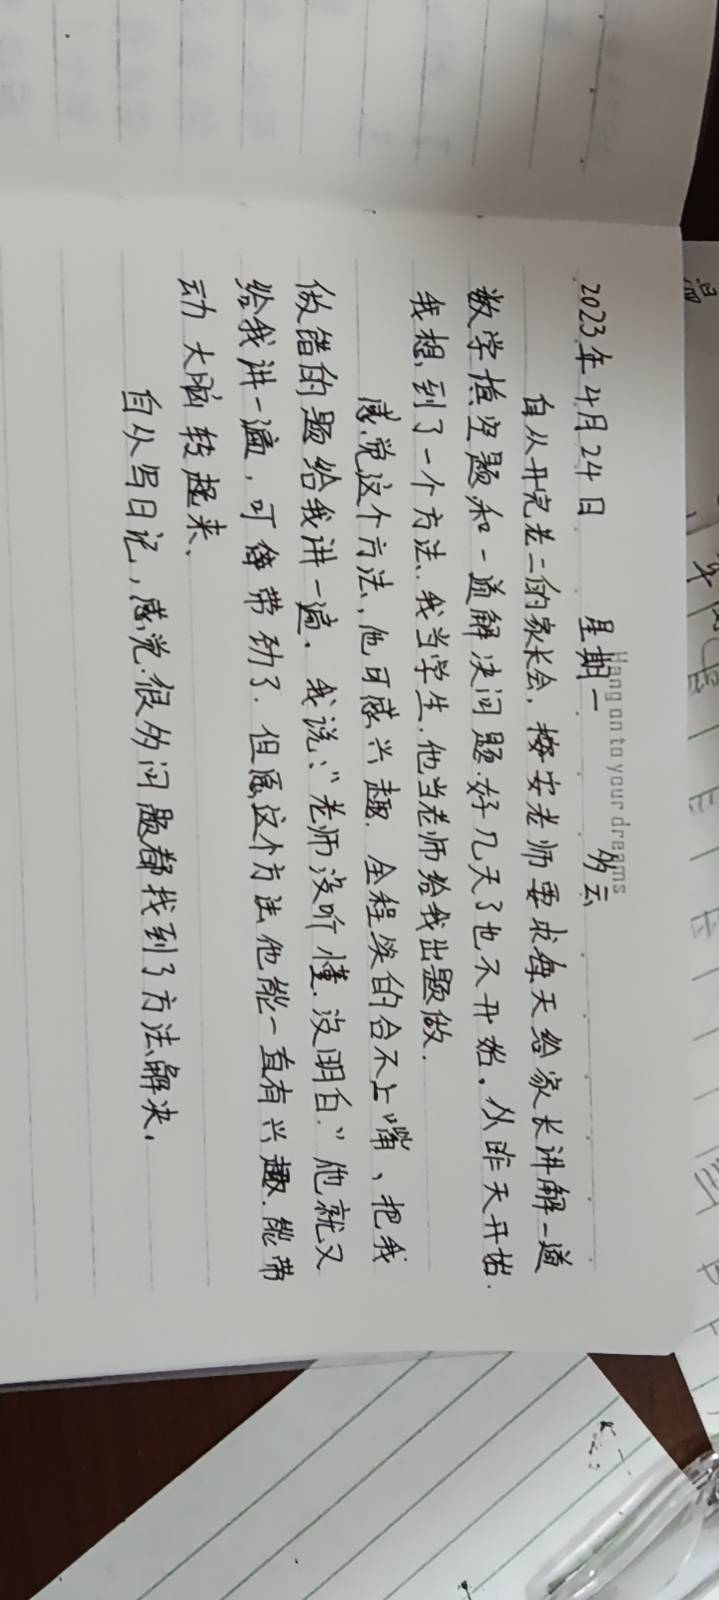 Hang on to your dreams
2023年4月24日 星期一 多云
自从开完老二的家长会,按安老师要求每天给家长讲解一道
数学填空题和一道解决问题.好几天了也不开始.从昨天开始.
我想到了一个方法.我当学生.他当老师给我出题做.
感觉这个方法,他可感兴趣.全程笑的合不上嘴、把我
做错的题给我讲一遍.我说:"老师没听懂.没明白."他就又
给我讲一遍,可带劲了.但愿这个方法他能一直有兴趣.能带
动大脑转起来、
自从写日记,感觉.很多问题都找到了方法解决,